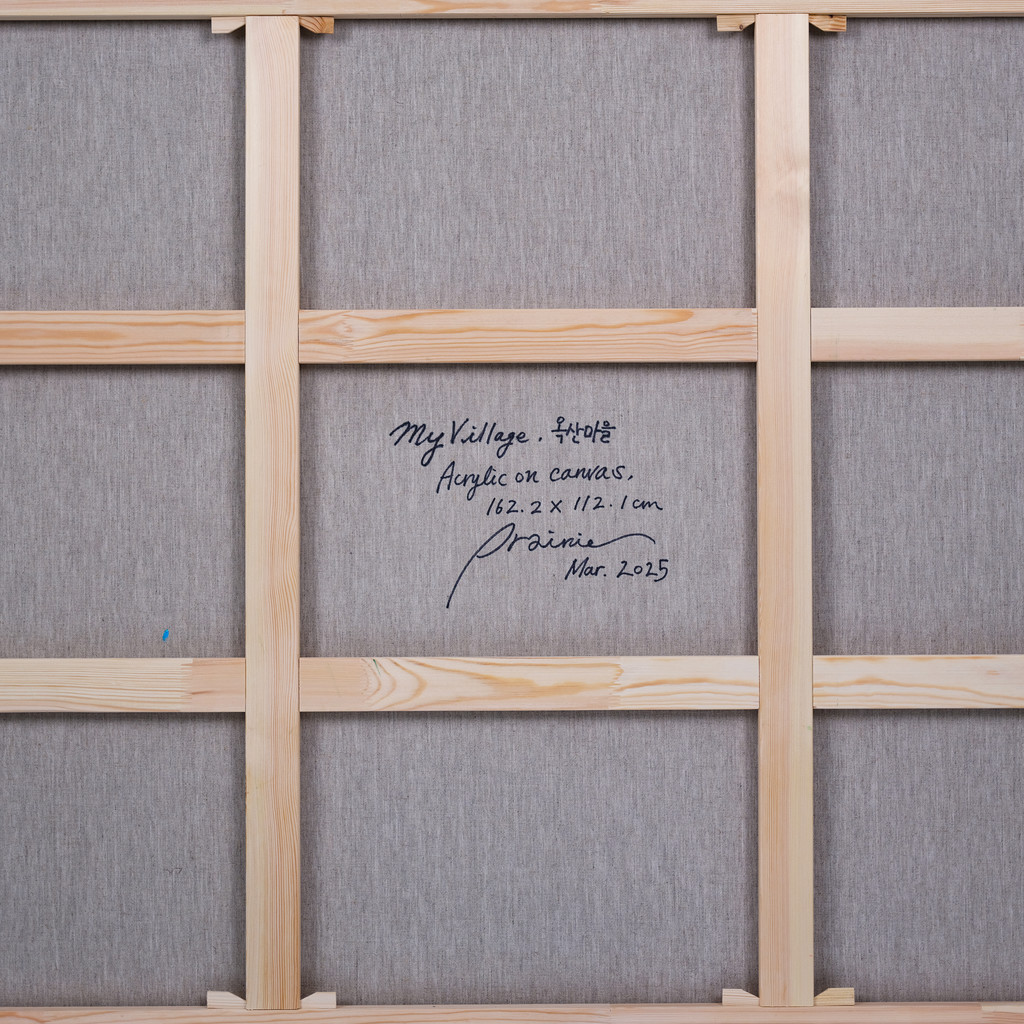 My Village. 옥산마을
Acrylic on canvas.
162.2 x 112.1 cm
Prairie
Mar. 2025